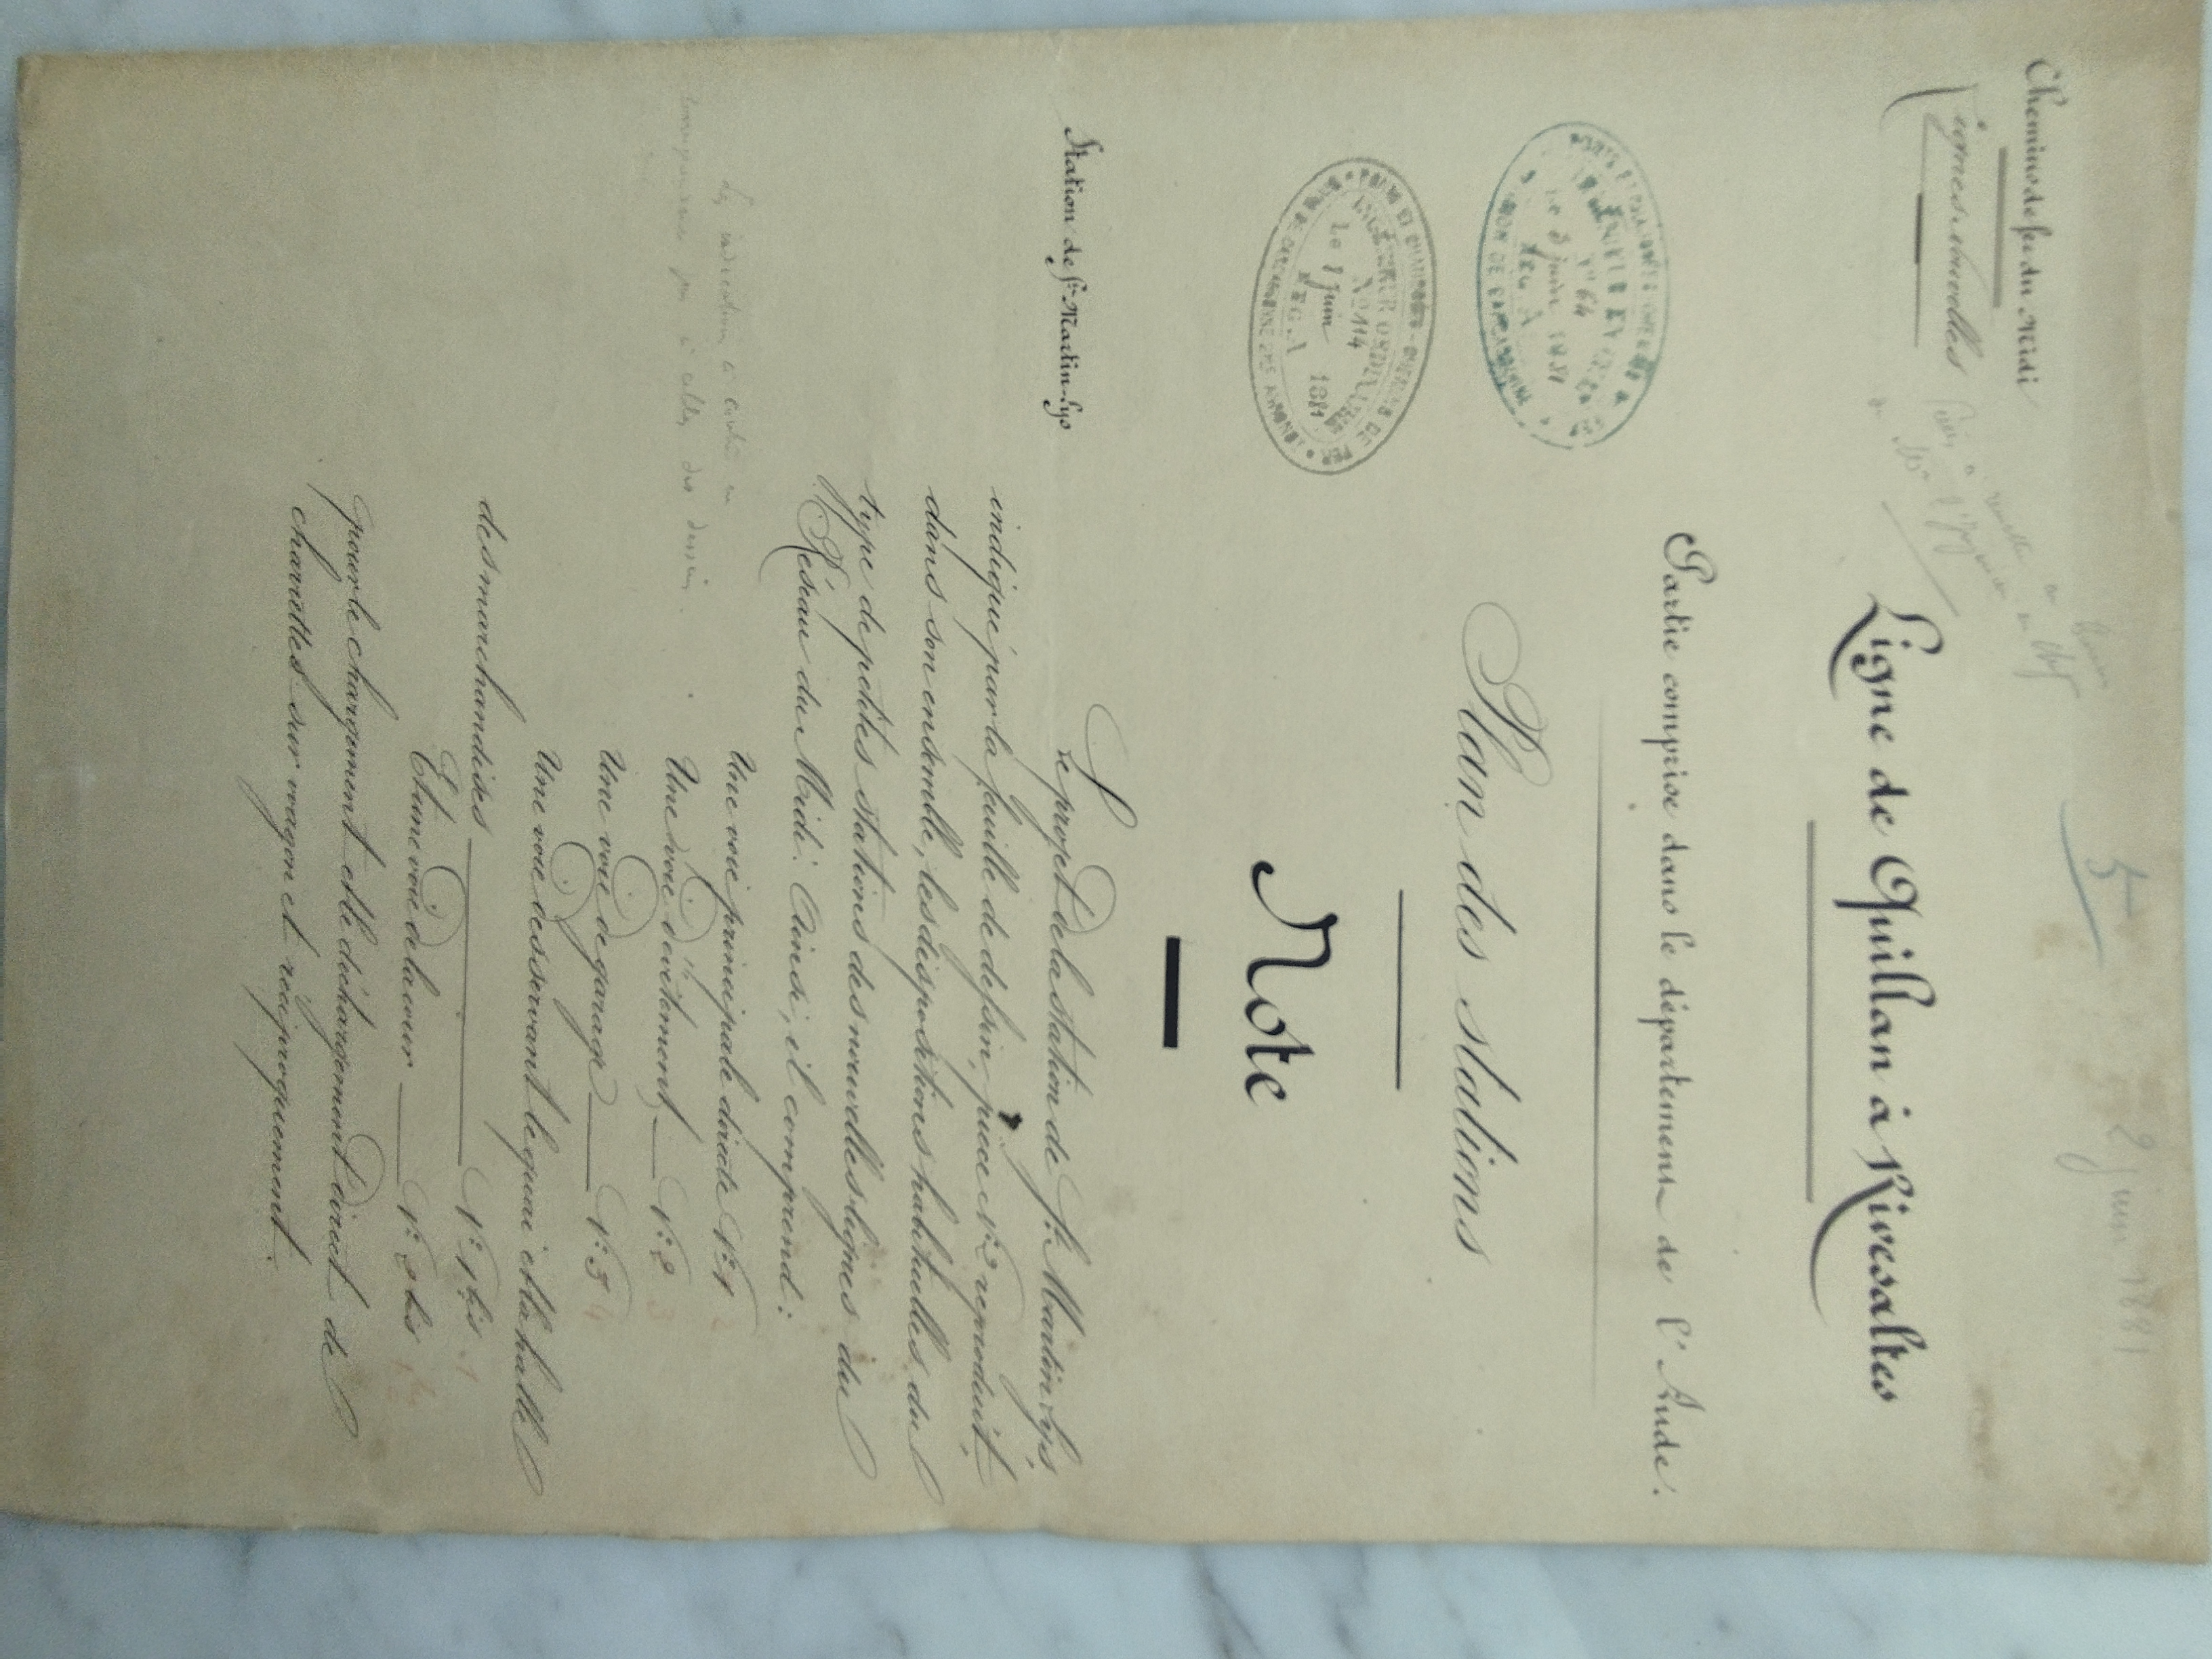 5
2 juin 1881
Chemins de fer du Midi
Lignes Nouvelles
à remettre au
l'Ingénieur en Chef
Ligne de Quillan à Rivesaltes
Partie comprise dans le département de l'Aude.
PONTS ET CHAUSSÉES - CHEMINS DE FER
INGÉNIEUR EN CHEF
N° 64
Le 3 juin 1881
REG. A
DE CARCASSONNE
Plan des stations
PONTS ET CHAUSSÉES - CHEMINS DE FER
INGÉNIEUR ORDINAIRE
N° 114
Le 1 Juin 1881
REG. A
DE CARCASSONNE
Note
Station de St-Martin-Lys
Le projet de la station de St. Martin Lys,
indiqué par la feuille de dessin, pièce N° 2 reproduit,
dans son ensemble, les dispositions habituelles du
type de petites stations des nouvelles lignes du
Réseau du Midi. Ainsi, il comprend :
Les indications ci contre ne
correspondent pas à celles des dessins.
Une voie principale directe N° 1
Une voie d'évitement — N° 2 3
Une voie de garage — N° 3 4
Une voie desservant le quai et la halle
des marchandises — N° 1 bis
Et une voie de la cour — N° 2 bis
pour le chargement et le déchargement direct de
charrettes sur wagon et réciproquement.